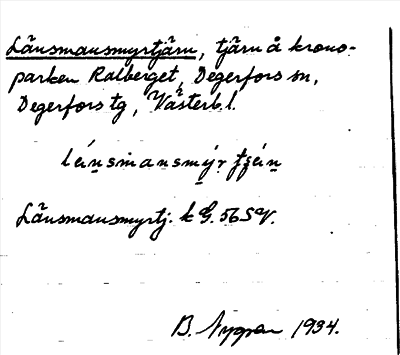 Länsmansmyrtjärn, tjärn å krono-
parken Ralberget, Degerfors sn,
Degerfors tg, Västerb. l.
lä́n̥smansmýr tjä́n̥
Länsmansmyrtj. k G. 56 SV.
B. Nygren 1934.